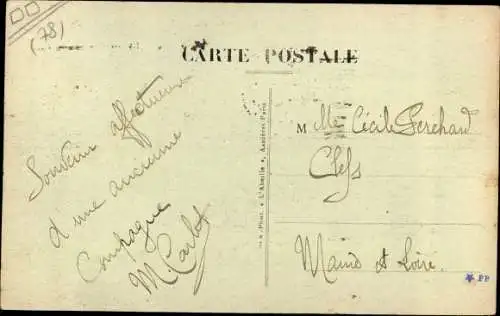 (78)
CARTE POSTALE
Souvenir affectueux
d'une ancienne
Compagne
M. Carlot
« Phot. « L'Abeille », Asnières-Paris
M Mlle Cécile Perchard
Clefs
Maine et Loire.
PP